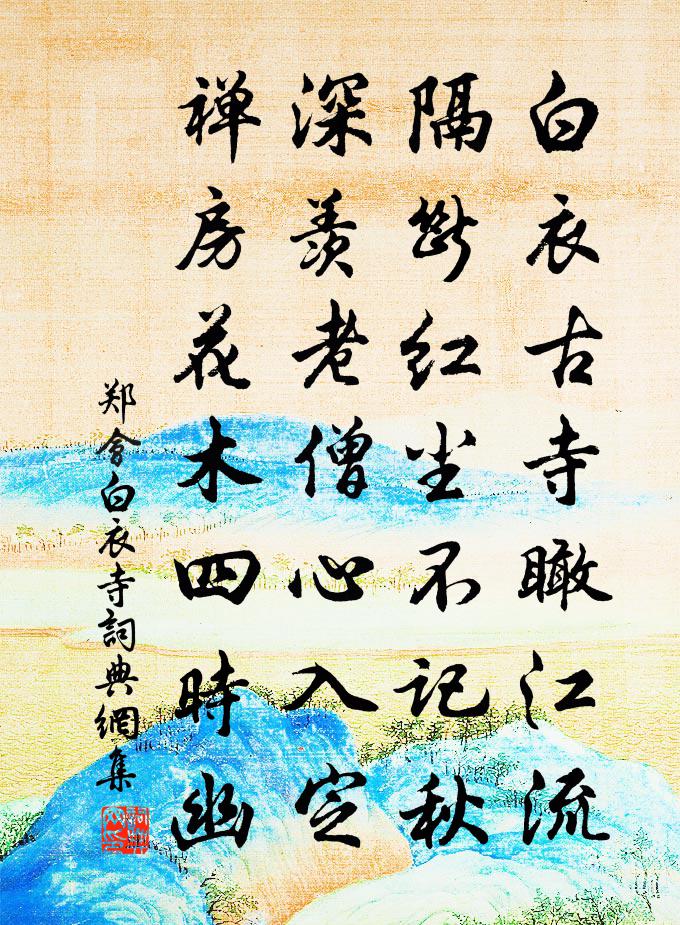 白衣古寺瞰江流
隔断红尘不记秋
深羡老僧心入定
禅房花木四時幽
郑會白衣寺詞典網集